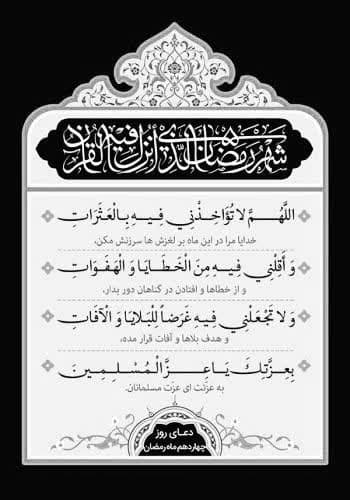 شَهْرُ رَمَضَانَ الَّذِي أُنْزِلَ فِيهِ الْقُرْآنُ
اَللّهُمَّ لا تُؤَاخِذْنِي فِيهِ بِالْعَثَرَاتِ
خدایا مرا در این ماه بر لغزش ها سرزنش مکن،
وَ أَقِلْنِي فِيهِ مِنَ الْخَطَايَا وَ الْهَفَوَاتِ
و از خطاها و افتادن در گناهان دور بدار،
وَ لا تَجْعَلْنِي فِيهِ غَرَضاً لِلْبَلايَا وَ الْآفَاتِ
و هدف بلاها و آفات قرار مده،
بِعِزَّتِكَ يَا عِزَّ الْمُسْلِمِينَ
به عزّتت ای عزّت مسلمانان.
دعای روز
چهاردهم ماه رمضان